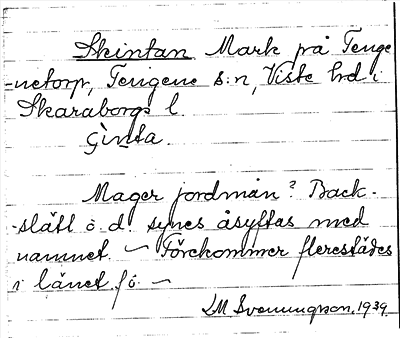 Skintan Mark på Tenge
-netorp, Tengene s:n, Viste hrd i
Skaraborgs l.
Mager jordmån? Back-
-slätt o. d. synes åsyftas med
namnet. – Förekommer flerestädes
i länet. –
LM Svenungsson. 1939.